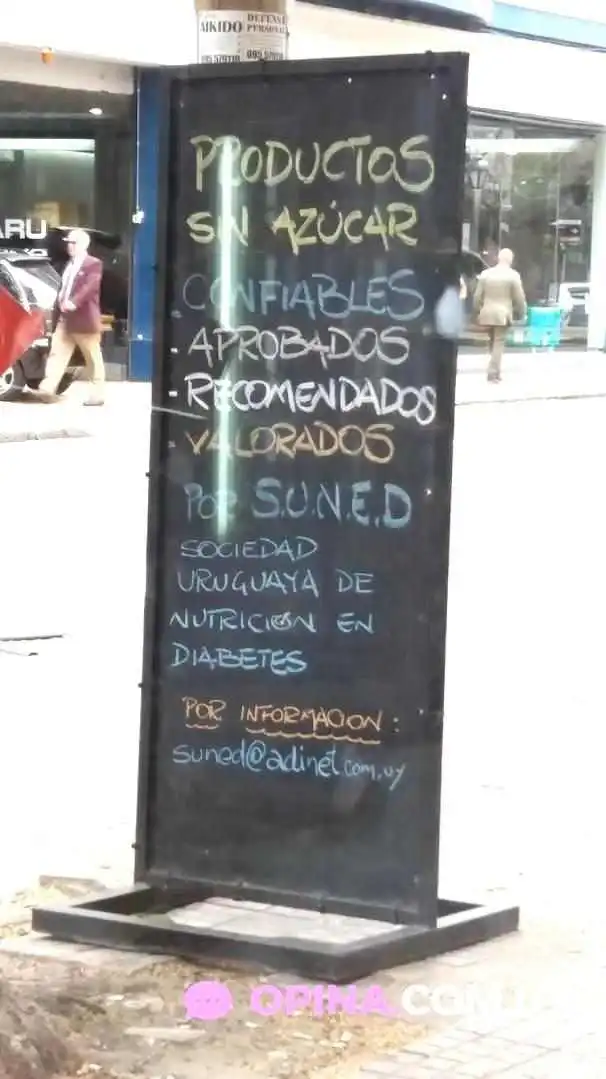 AIKIDO
DEFENSA
PERSONAL
PRODUCTOS
SIN AZÚCAR
. CONFIABLES
- APROBADOS
- RECOMENDADOS
- VALORADOS
POR S.U.N.E.D
SOCIEDAD
URUGUAYA DE
NUTRICION EN
DIABETES
POR INFORMACION :
suned@adinet.com.uy
OPINA.COM